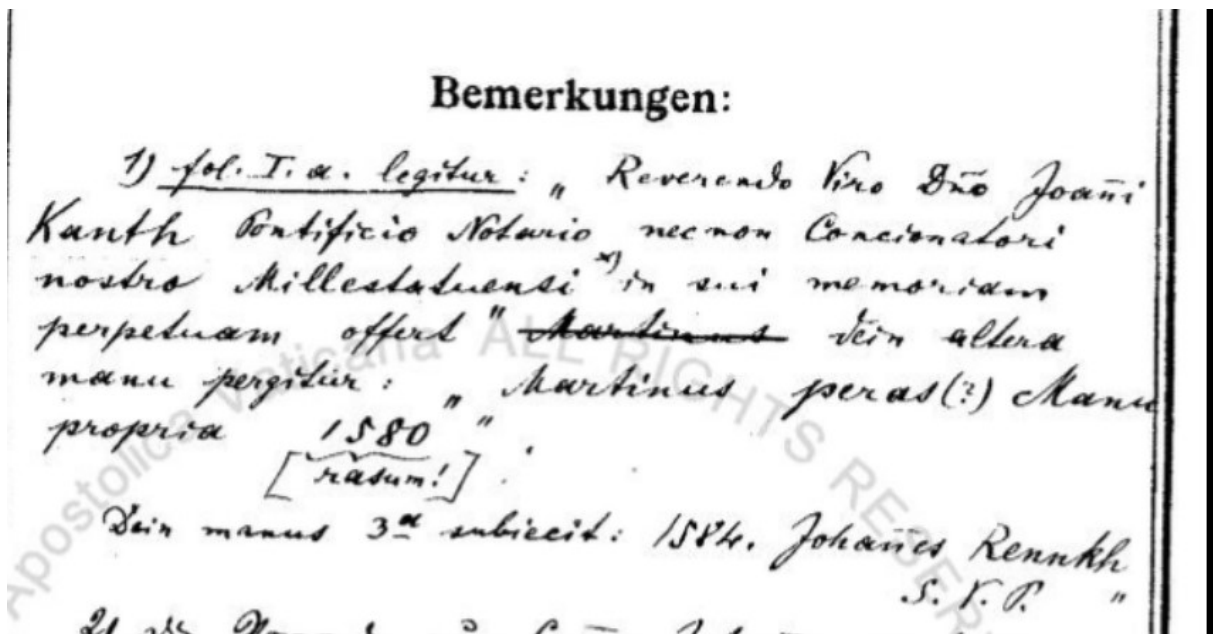 Bemerkungen:
1) fol. I. a. legitur: „ Reverendo Viro Dño Joañi
Kanth Pontificio Notario necnon Concionatori
nostro Millestatuensi x) in sui memoriam
perpetuam offert " Martinus dein altera
manu pergitur: „ Martinus peras(?) Manu
propria 1580 " .
[rasum!]
Dein manus 3a subiecit: 1584. Johañes Rennkh
S. V. P. "
Apostolica Vaticana ALL RIGHTS RESER